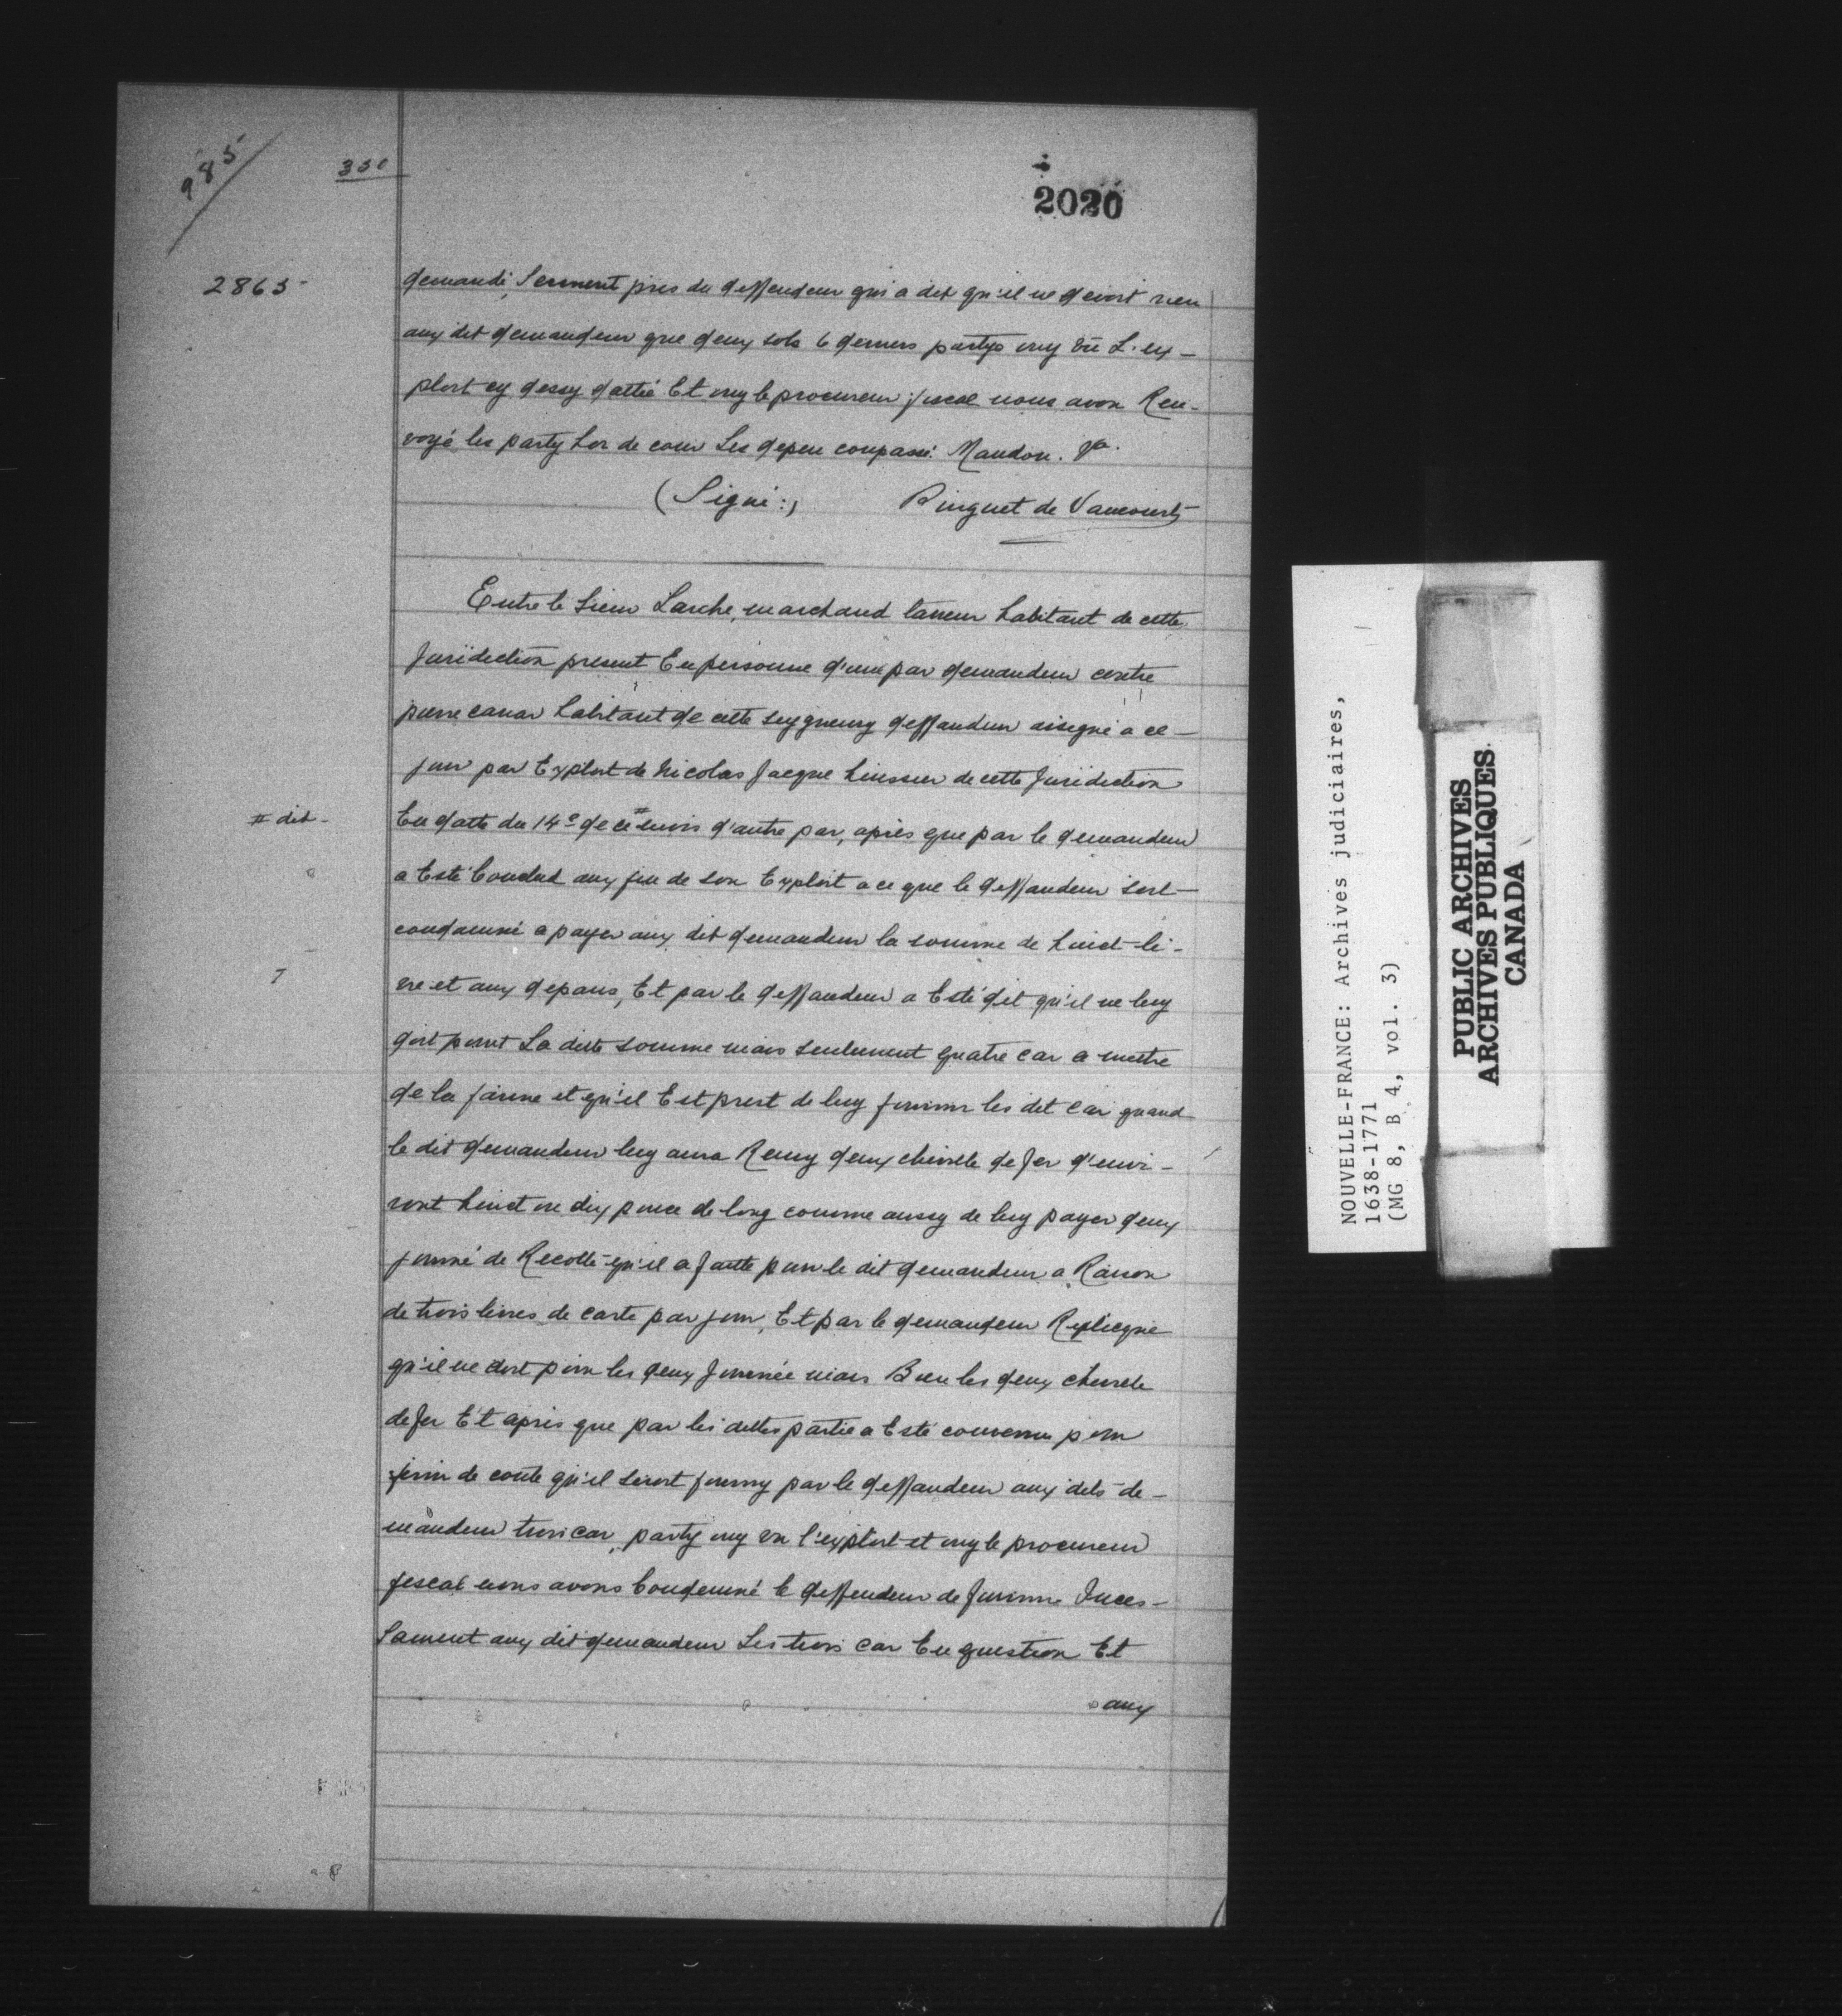 985
350
2020
2863
demandé, Serment pris du deffendeur qui a dit qu'il ne devoit rien
aux dit demandeur que deux sols 6 deniers partys ouy vû L'ex-
ploit cy dessy datté Et ouy le procureur fiscal nous avon Ren-
voyé les party hor de cour Les depen compassé. Mandon. &a.
(Signé:) Ringuet de Vancourt
Entre le Sieur Larche, marchand tanneur habitant de cette
Juridiction present En personne d'une par demandeur contre
pierre canar habitant de cette seygneury deffandeur assigné a ce
jour par Exploit de Nicolas Jacque huissier de cette Juridiction
# dit
En datte du 14e de ce # mois d'autre par, après que par le demandeur
a Esté Conclud aux fin de son Exploit a ce que le deffandeur soit
condamné a payer aux dit demandeur la somme de huict li-
vre et aux depans, Et par le deffandeur a Esté dit qu'il ne luy
doit point La ditte somme mais seulement quatre car a mettre
de la farine et qu'il Est prest de luy fournir les dit car quand
le dit demandeur luy aura Remy deux cheville de fer d'envi-
ront huict ou dix pouce de long comme aussy de luy payer deux
journé de Recolte qu'il a faitte pour le dit demandeur a Raison
de trois livres de carte par jour, Et par le demandeur Replicque
qu'il ne doit poin les deux Journée mais Bien les deux cheville
de fer Et après que par les dittes partie a Esté convenu pour
finir de conte qu'il seroit fourny par le deffandeur aux dits de-
mandeur trois car, party ouy vu l'exploit et ouy le procureur
fiscal nous avons Condemné le deffendeur de fournir Inces-
sament aux dit demandeur Les trois car En question Et
aux
NOUVELLE-FRANCE: Archives judiciaires,
1638-1771
(MG 8, B 4, vol. 3)
PUBLIC ARCHIVES
ARCHIVES PUBLIQUES
CANADA